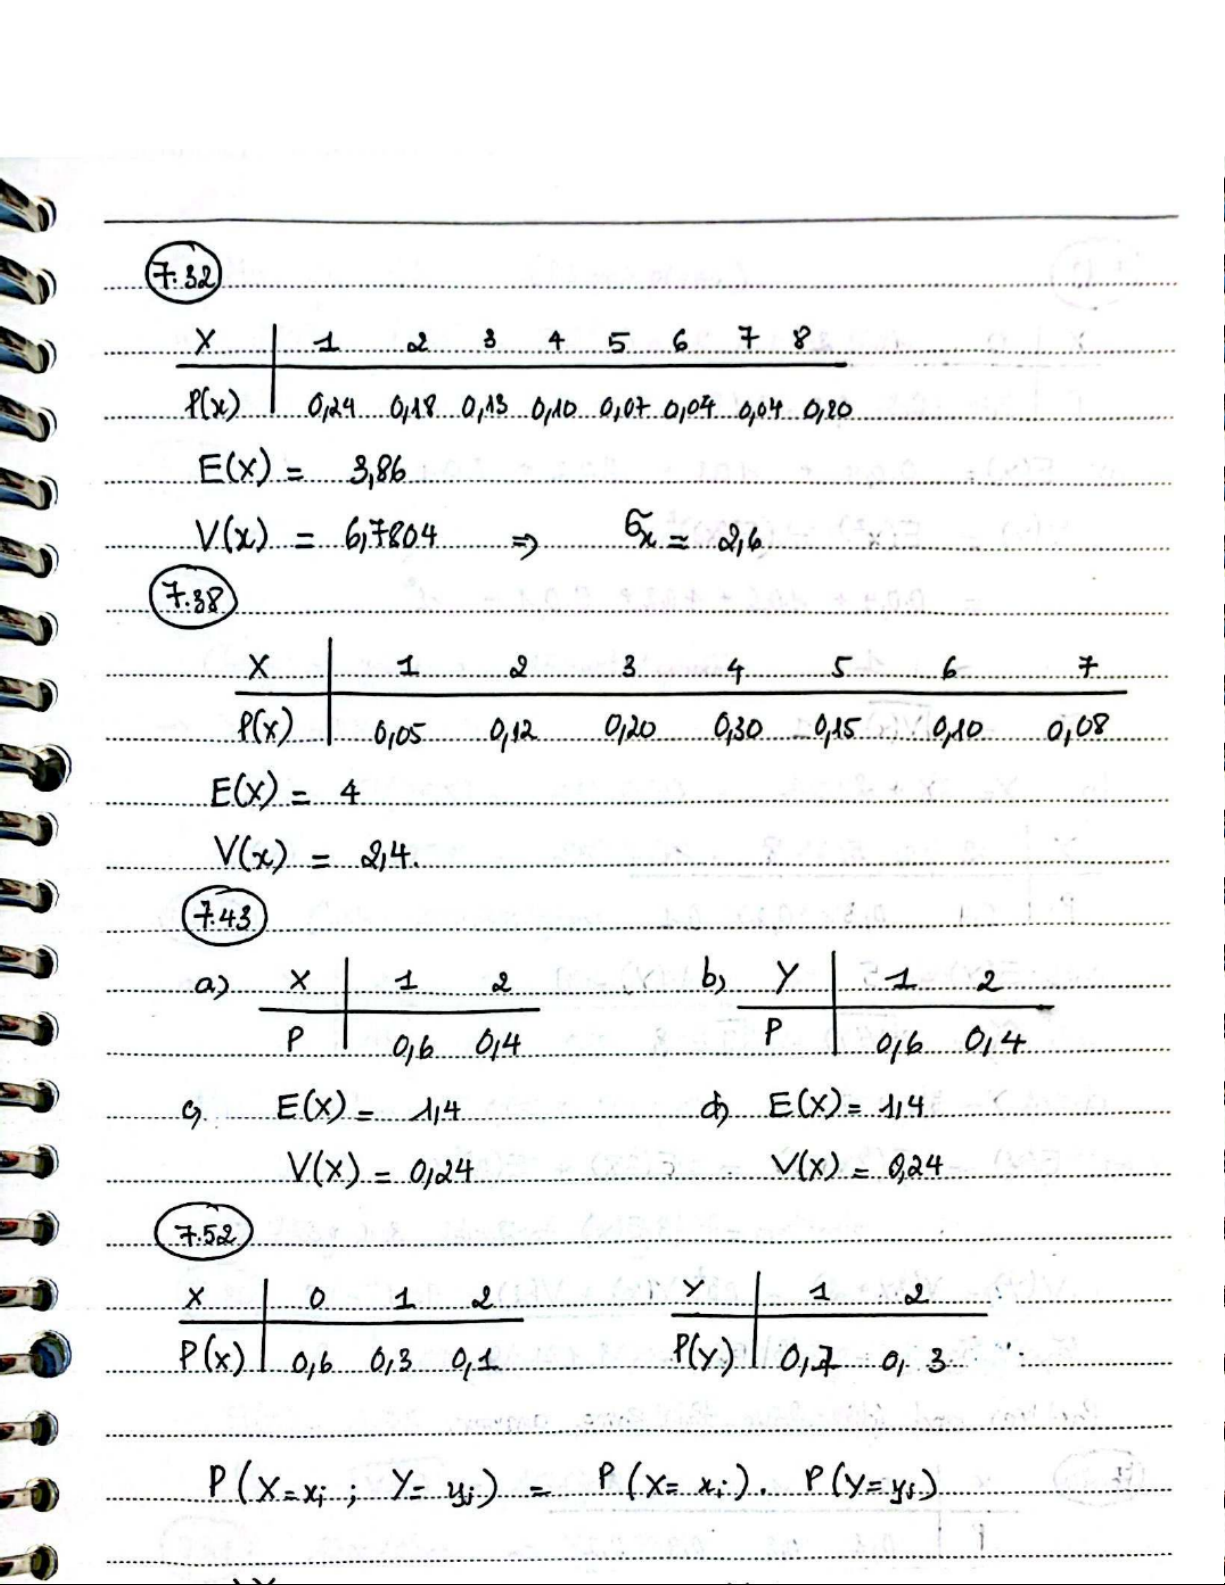 7.32
X 1 2 3 4 5 6 7 8
P(x) 0,24 0,18 0,13 0,10 0,07 0,04 0,04 0,20
E(X) = 3,86
V(x) = 6,7804 ⇒ σx ≈ 2,6
7.38
X 1 2 3 4 5 6 7
P(x) 0,05 0,12 0,20 0,30 0,15 0,10 0,08
E(X) = 4
V(x) = 2,4.
7.43
a) X 1 2 b) Y 1 2
P 0,6 0,4 P 0,6 0,4
c) E(X) = 1,4 d) E(X) = 1,4
V(X) = 0,24 V(X) = 0,24
7.52
X 0 1 2 Y 1 2
P(x) 0,6 0,3 0,1 P(y) 0,7 0,3
P(X=xi ; Y=yj) = P(X=xi). P(Y=yj)